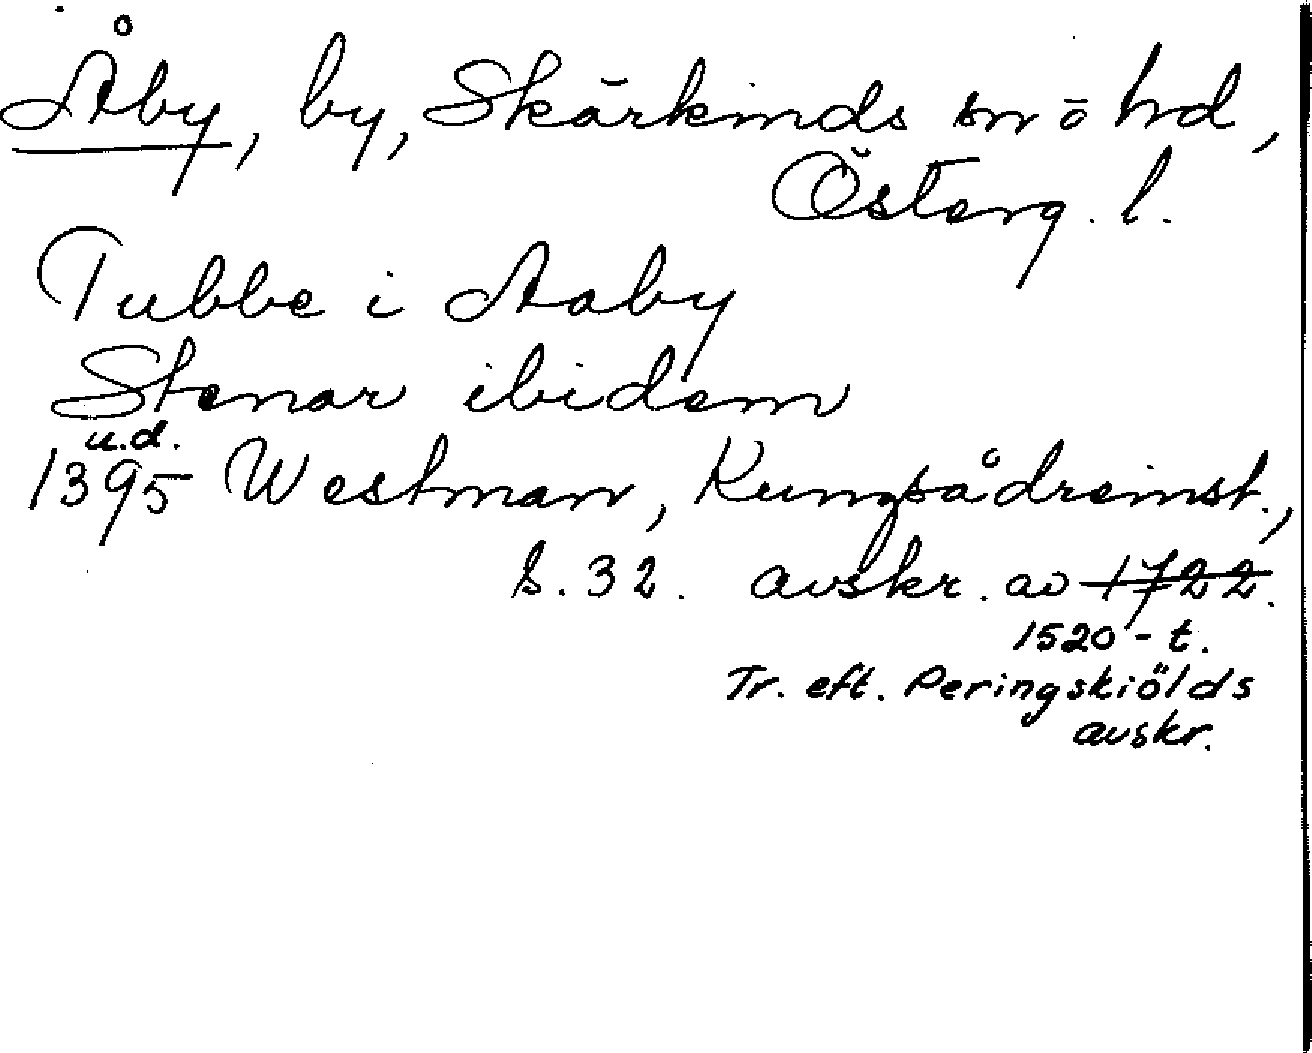 Åby, by, Skärkinds sn o hd,
Österg. l.
Tubbe i Aaby
Stenar ibidem
u.d.
1395 Westman, Kungsådreinst.,
s. 32. avskr. av 1722.
1520-t.
Tr. eft. Peringskiölds
avskr.